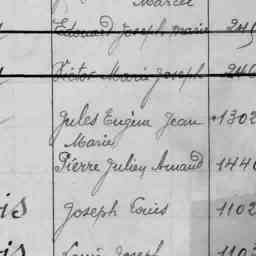 Marcel
Edouard Joseph Marie 245
Victor Marie Joseph 246
Jules Eugène Jean +1302
Marie
Pierre Julien Armand 1440
is Joseph Louis 1102
is Louis Joseph 1103